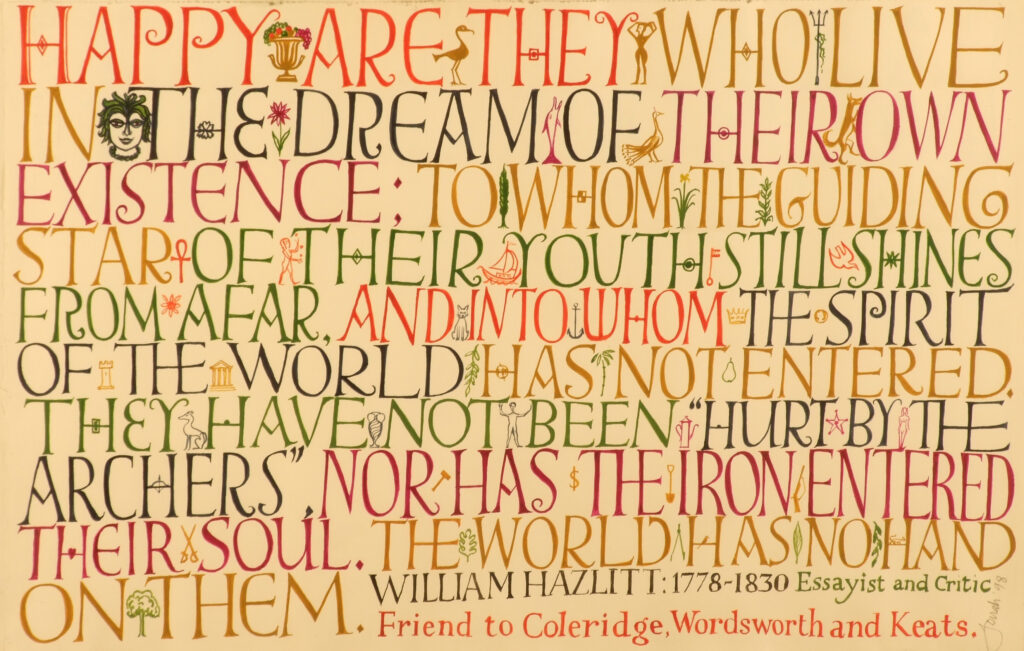 HAPPY ARE THEY WHO LIVE
IN THE DREAM OF THEIR OWN
EXISTENCE; TO WHOM THE GUIDING
STAR OF THEIR YOUTH STILL SHINES
FROM AFAR, AND INTO WHOM THE SPIRIT
OF THE WORLD HAS NOT ENTERED.
THEY HAVE NOT BEEN "HURT BY THE
ARCHERS", NOR HAS THE IRON ENTERED
THEIR SOUL. THE WORLD HAS NO HAND
ON THEM. WILLIAM HAZLITT: 1778-1830 Essayist and Critic
Friend to Coleridge, Wordsworth and Keats.